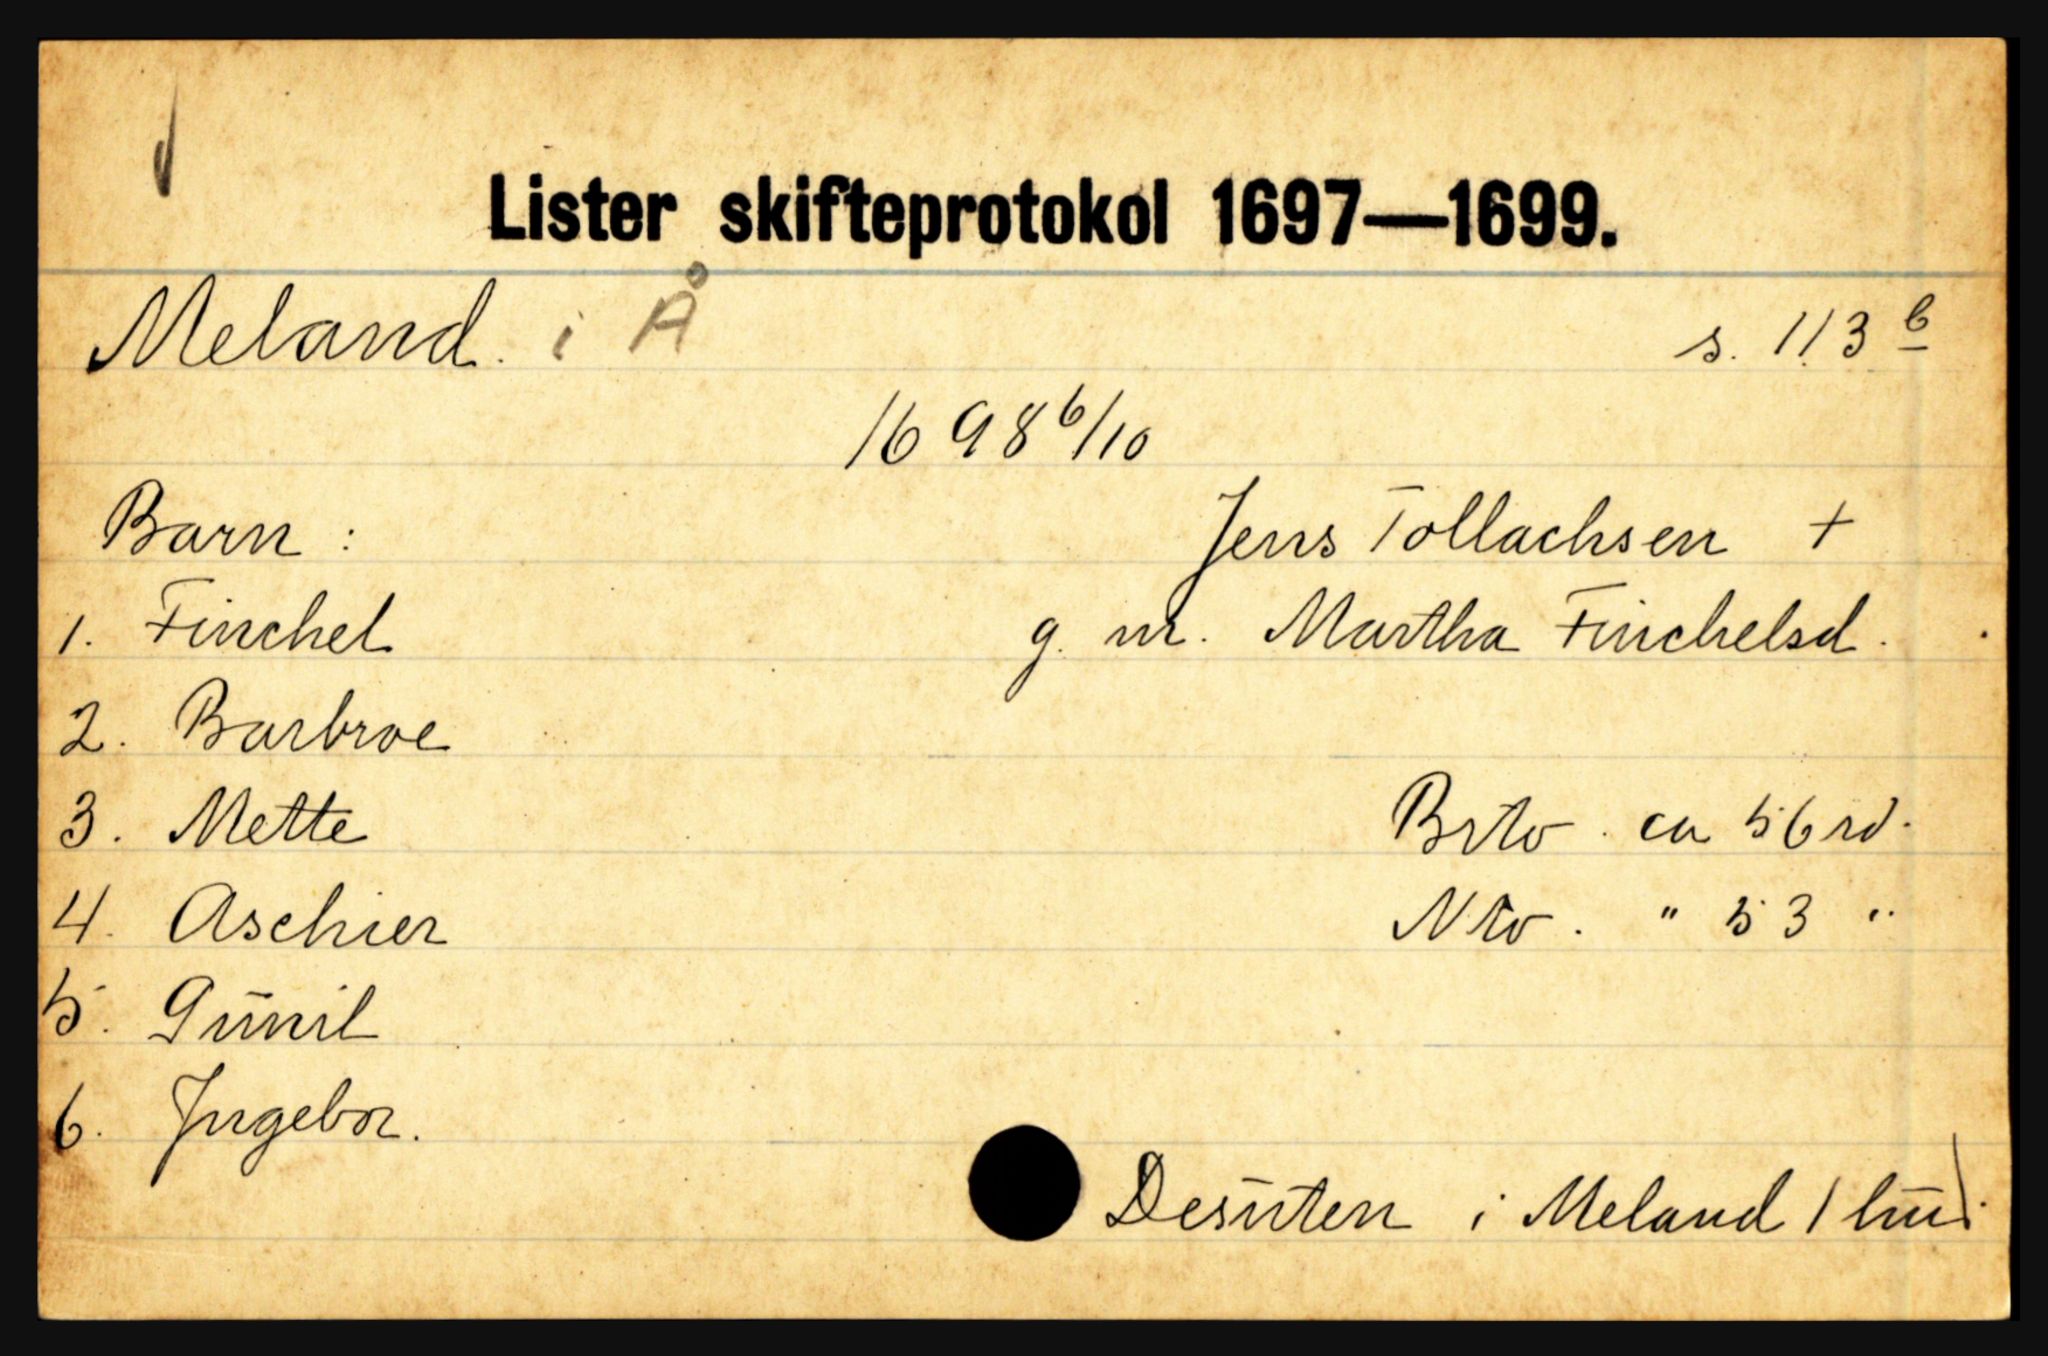 Lister skifteprotokol 1697—1699.
Meland. i Å s. 113 b
1698 6/10
Barn : Jens Tollachsen +
1. Finchel g. m. Martha Finchelsd.
2. Barbroe
3. Mette Brto. ca 56 rd.
4. Aschier Nto. " 53 "
5. Gunil
6. Ingebor.
Desuten i Meland 1 hud.